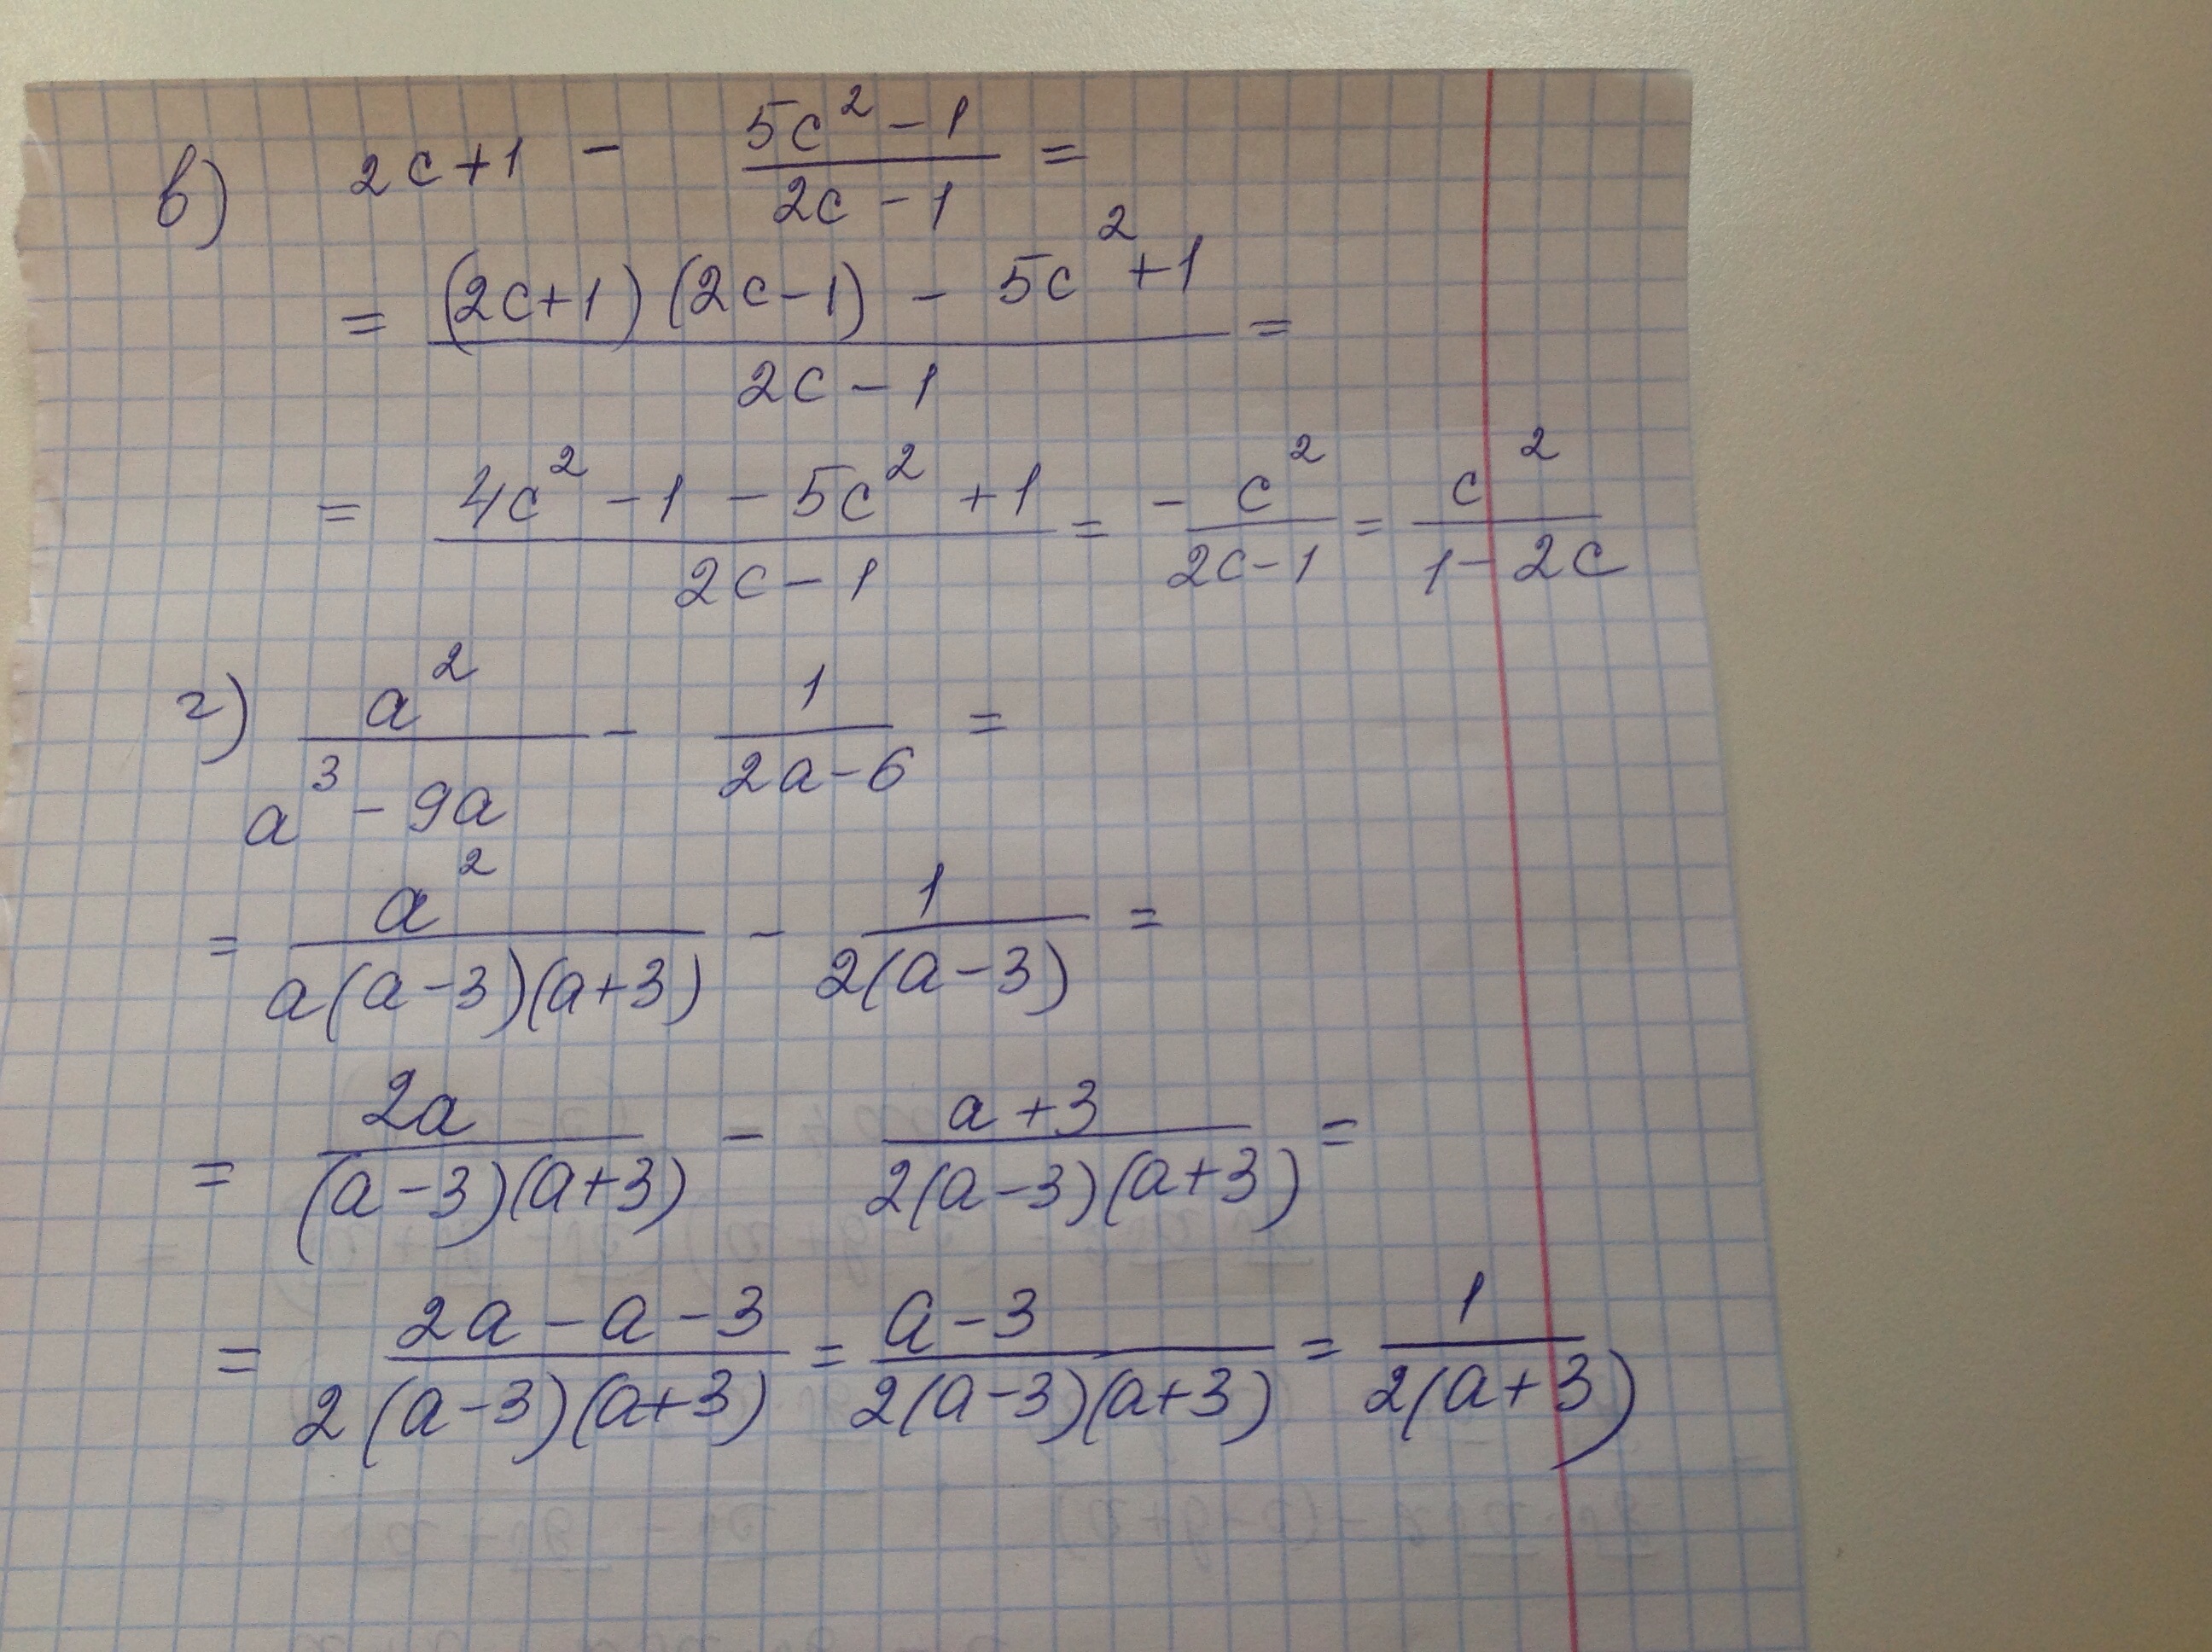 в) 2c+1 - \frac{5c^2-1}{2c-1} =
= \frac{(2c+1)(2c-1) - 5c^2+1}{2c-1} =
= \frac{4c^2-1-5c^2+1}{2c-1} = -\frac{c^2}{2c-1} = \frac{c^2}{1-2c}
г) \frac{a^2}{a^3-9a} - \frac{1}{2a-6} =
= \frac{a^2}{a(a-3)(a+3)} - \frac{1}{2(a-3)} =
= \frac{2a}{(a-3)(a+3)} - \frac{a+3}{2(a-3)(a+3)} =
= \frac{2a-a-3}{2(a-3)(a+3)} = \frac{a-3}{2(a-3)(a+3)} = \frac{1}{2(a+3)}